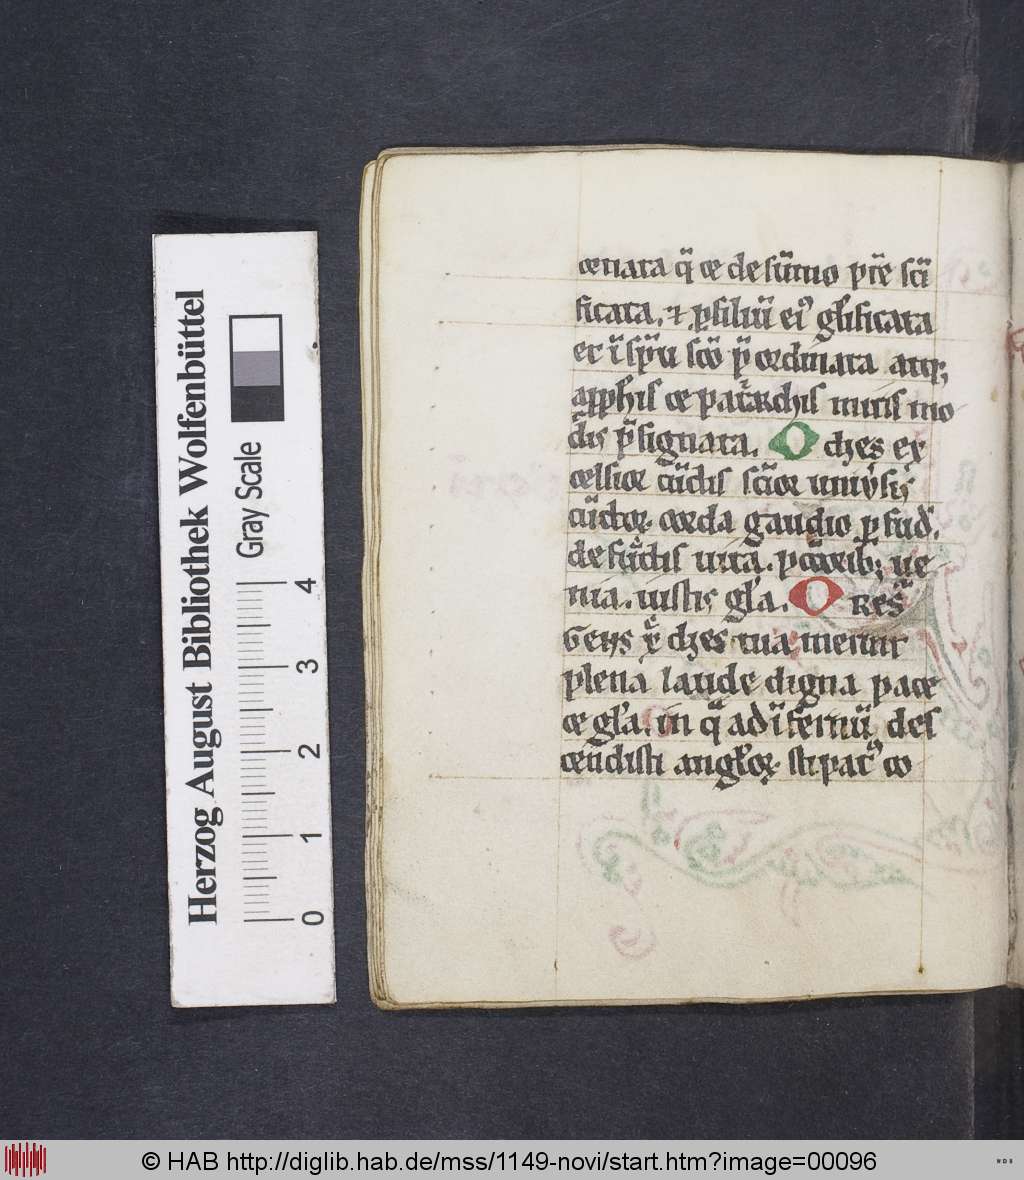 cenata q̄ ce de sūmo pr̄e scī
ficata. ⁊ ꝑ filiū eiꝰ gl̓ificata
et ī sp̄u sc̄o p̄ordinata atq;
a ꝓph̄is ce pat̓rchis miris mo
dis p̄signata. O dies ex
celsior cūctis scīor univ̓sis
cūctoꝝ corda gaudio ꝑfud̓.
defūctis uita. p̄ctōrib; ue
nia. iustis gl̓a. O res
gens xp̄e dies tua mer̄ur
plena laude digna pace
ce gl̓a. in q̄ ad īfernū des
cendisti angl̓oꝝ stipatꝰ co
Herzog August Bibliothek Wolfenbüttel
Gray Scale
0 1 2 3 4
© HAB http://diglib.hab.de/mss/1149-novi/start.htm?image=00096